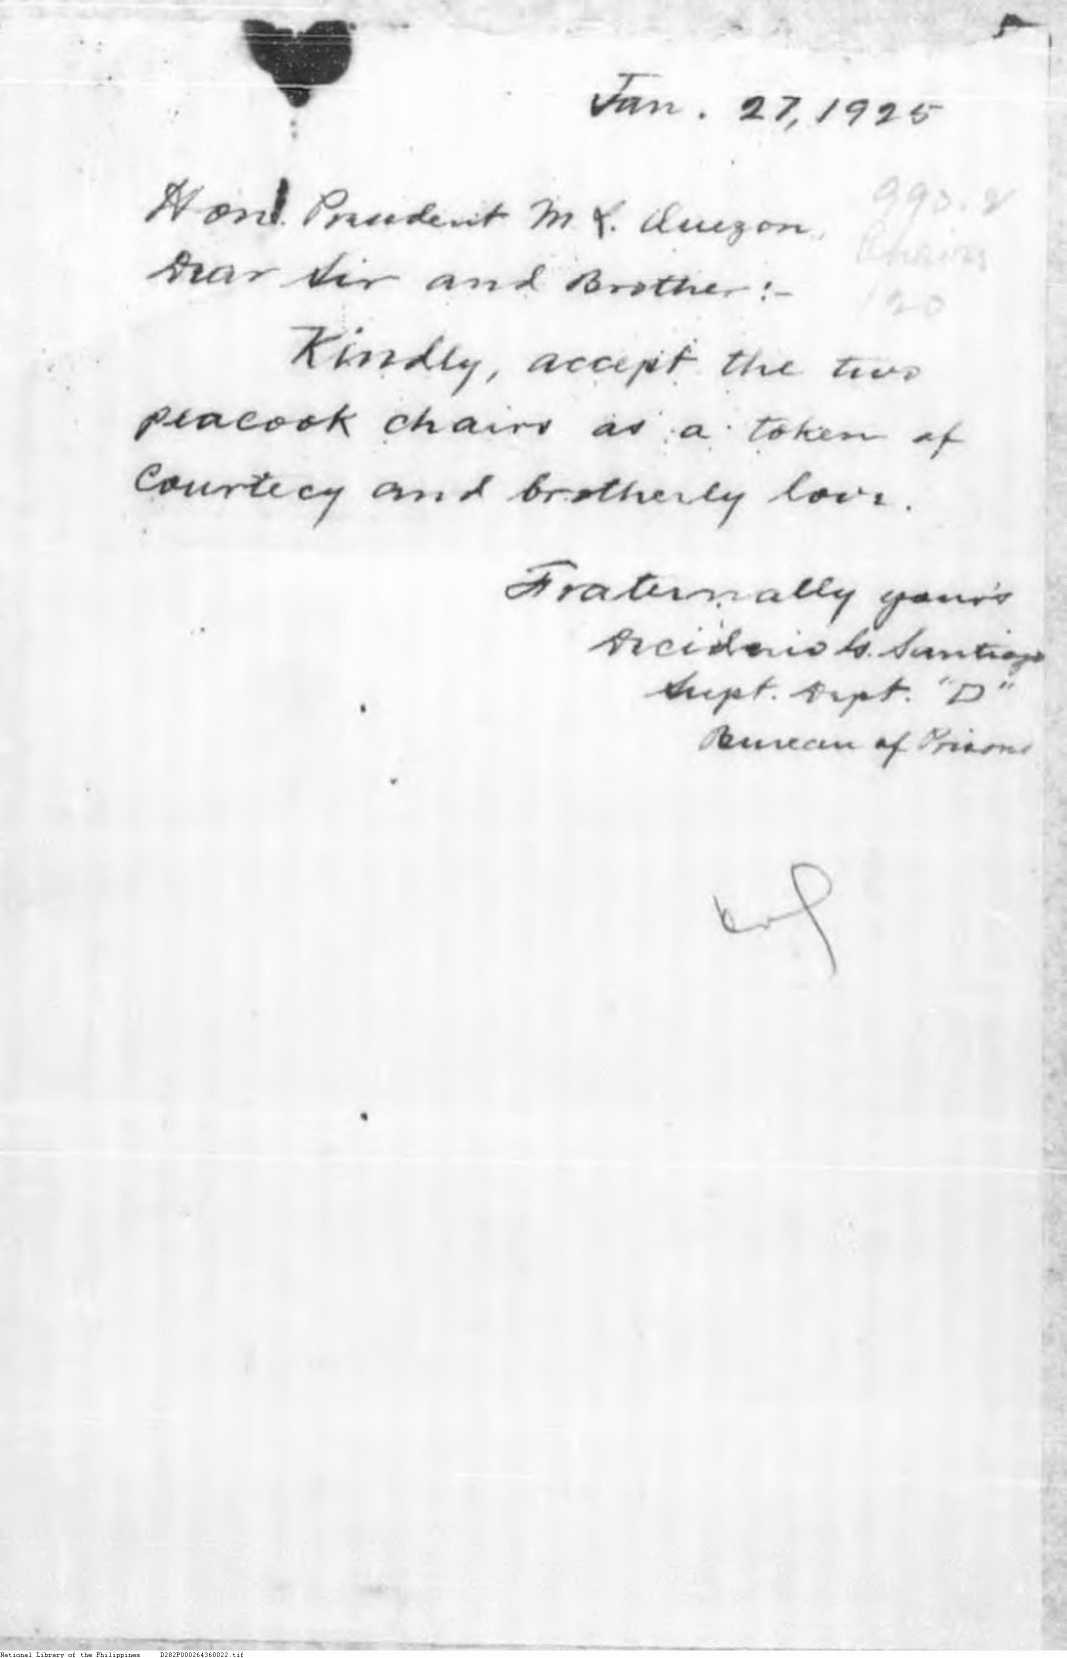 Jan. 27, 1925
990.2
Chairs
120
Hon. President M L. Quezon,
Dear Sir and Brother:-
Kindly, accept the two
peacook chairs as a token of
Courtecy and brotherly love.
Fraternally yours
Deciderio G. Santiago
Supt. Dept. "D"
Bureau of Prisons
National Library of the Philippines D282P000264360022.tif